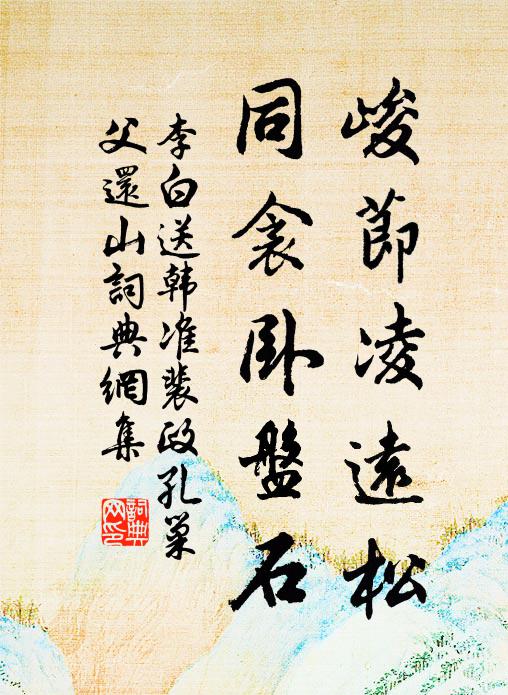 峻節凌遠松
同衾卧盤石
李白送韩准裴政孔巢
父還山詞典網集
詞典
网印